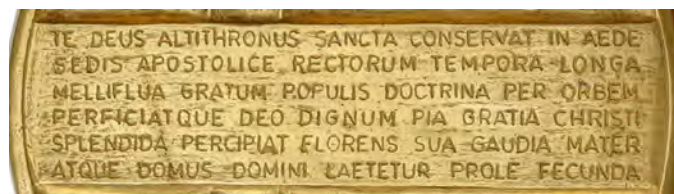 TE DEUS ALTITHRONUS SANCTA CONSERVAT IN AEDE
SEDIS APOSTOLICE RECTORUM TEMPORA LONGA
MELLIFLUA GRATUM POPULIS DOCTRINA PER ORBEM
PERFICIATQUE DEO DIGNUM PIA GRATIA CHRISTI
SPLENDIDA PERCIPIAT FLORENS SUA GAUDIA MATER
ATQUE DOMUS DOMINI LAETETUR PROLE FECUNDA